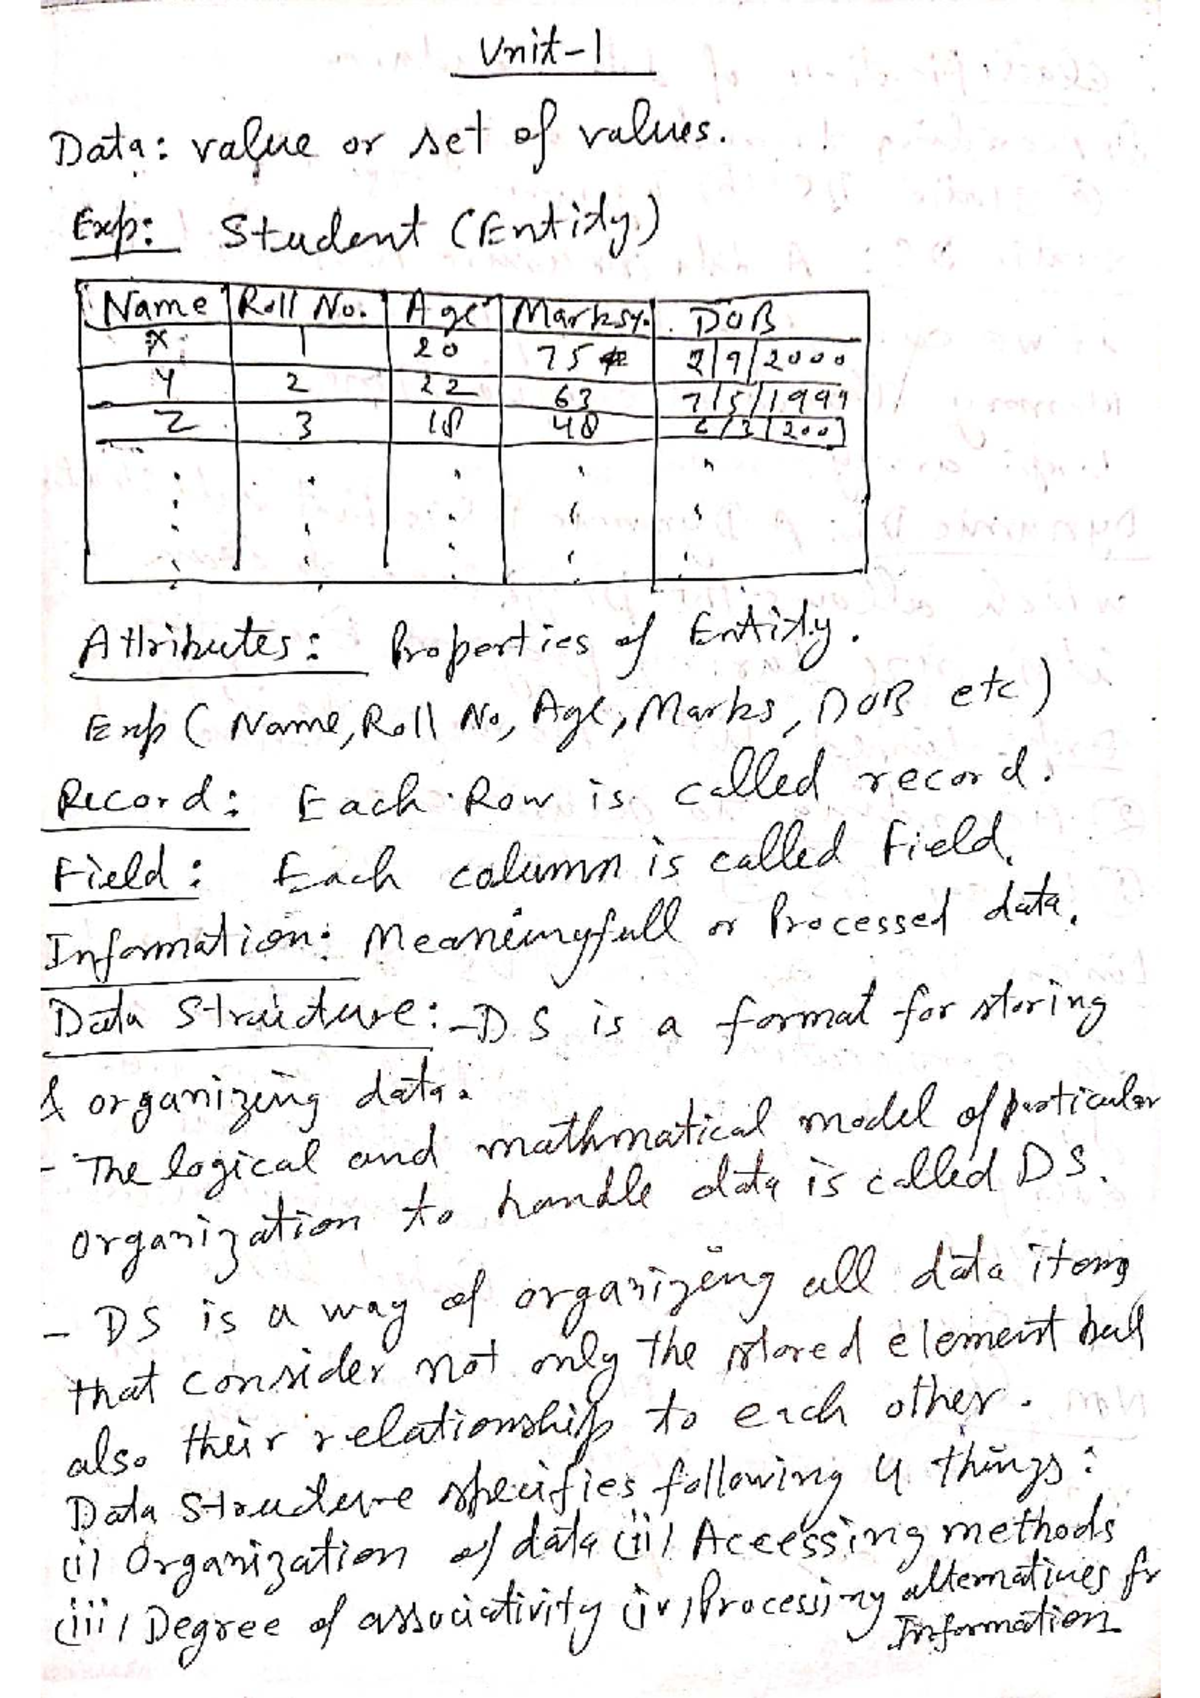 Unit-1
Data: value or set of values.
Exp: Student (Entity)
Name Roll No. Age Marks%. DOB
X 1 20 75 2/9/2000
Y 2 22 63 7/5/1999
Z 3 18 48 /3/2001
Attributes: Properties of Entity.
Exp (Name, Roll No, Age, Marks, DOB etc)
Record: Each Row is called record.
Field: Each column is called Field.
Information: Meaningfull or Processed data.
Data Structure:- DS is a format for storing
& organizing data.
- The logical and mathmatical model of particular
organization to handle data is called DS.
- DS is a way of organizing all data items
that consider not only the stored element but
also their relationship to each other.
Data Structure specifies following 4 things:
(i) Organization of data (ii) Accessing methods
(iii) Degree of associativity (iv) Processing alternatives fr
Information